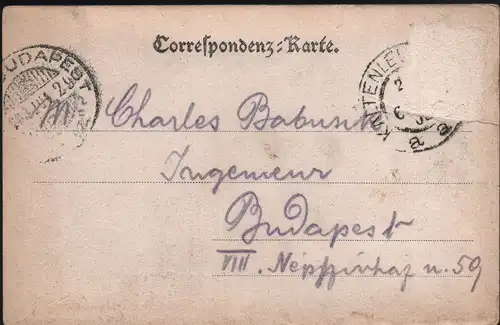 Correspondenz-Karte.
BUDAPEST
KALTENLEU
M Charles Babusnik
Ingenieur
Budapest
VIII. Népszinház u. 59